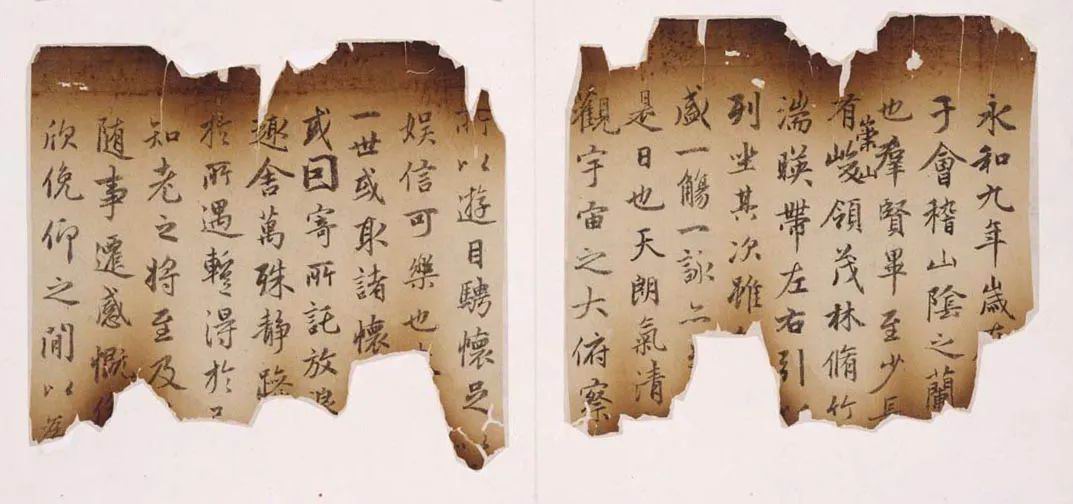 永和九年歲在
于會稽山陰之蘭
也羣賢畢至少長
有崇山峻領茂林脩竹
湍暎帶左右引以
列坐其次雖
盛一觴一詠亦
是日也天朗氣清
觀宇宙之大俯察
所以遊目騁懷足以
娛信可樂也
一世或取諸懷
或因寄所託放浪
趣舍萬殊靜躁
於所遇蹔得於己
知老之將至及
隨事遷感慨係
欣俛仰之閒以為